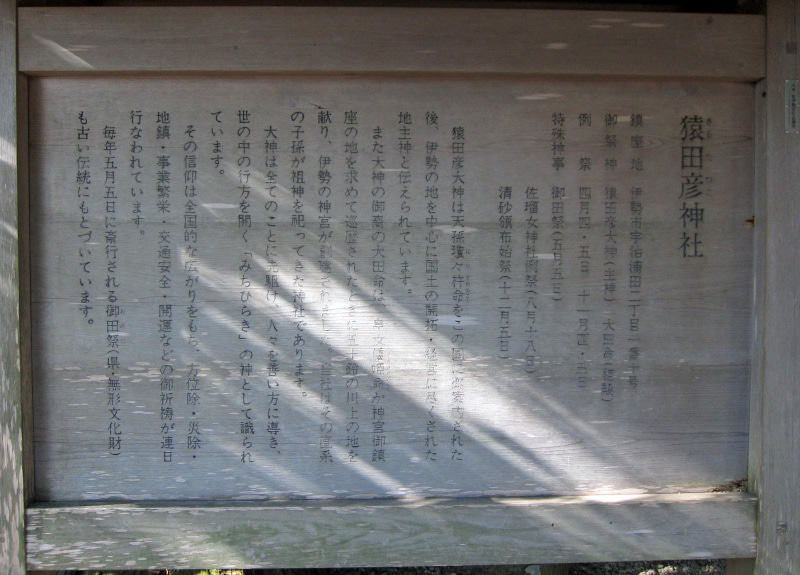 猿田彦神社
鎮座地 伊勢市宇治浦田二丁目一番十号
御祭神 猿田彦大神(主神) 大田命
例祭 四月四・五日 十一月四・五日
特殊神事 御田祭(五月五日)
佐瑠女神社例祭(八月十八日)
清砂頒布始祭(十二月五日)
猿田彦大神は天孫瓊々杵命をこの国に御案内された
後、伊勢の地を中心に国土の開拓・経営に尽くされた
地主神と伝えられています。
また大神の御裔の大田命は、皇女倭姫命が神宮御鎮
座の地を求めて巡歴されたときに五十鈴の川上の地を
献り、伊勢の神宮が創建されました。当社はその直系
の子孫が祖神を祀ってきた神社であります。
大神は全てのことに先駆け、人々を善い方に導き、
世の中の行方を開く「みちひらき」の神として識られ
ています。
その信仰は全国的な広がりをもち、方位除・災除・
地鎮・事業繁栄・交通安全・開運などの御祈祷が連日
行なわれています。
毎年五月五日に斎行される御田祭(県・無形文化財)
も古い伝統にもとづいています。